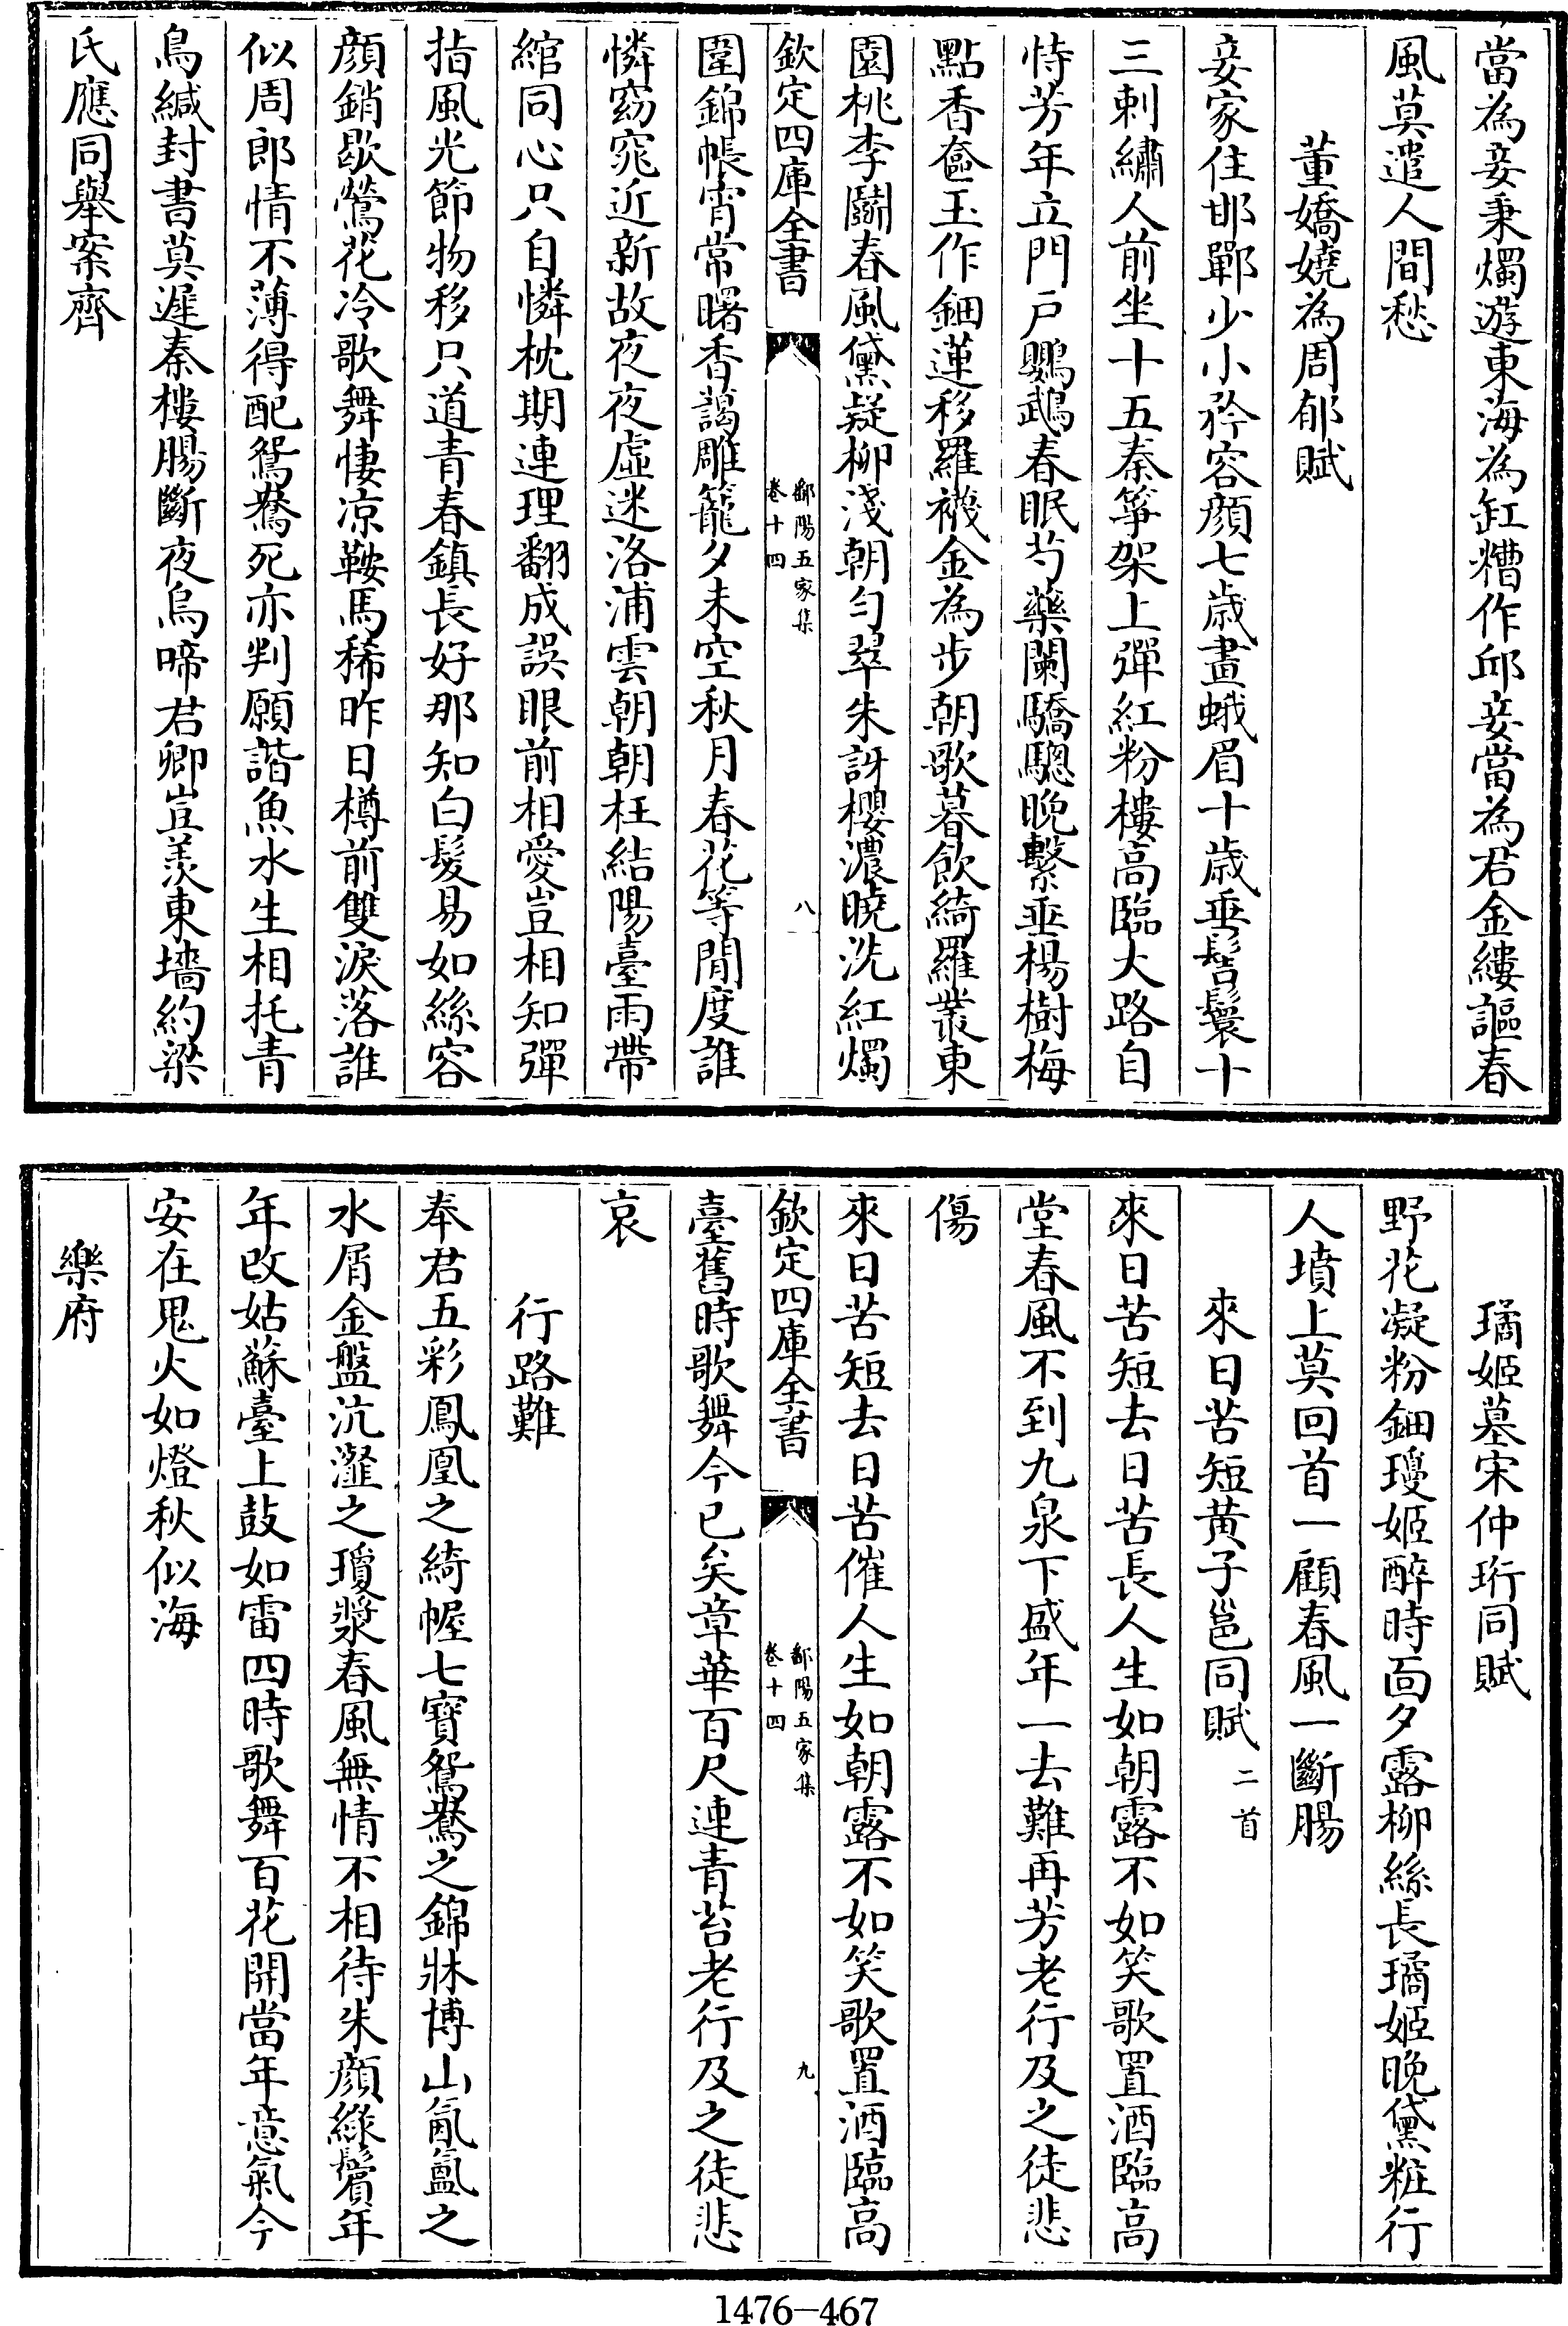 當為妾秉燭遊東海為缸糟作邱妾當為君金縷謳春
風莫遣人間愁
董嬌嬈為周郁賦
妾家住邯鄲少小矜容顔七歳畫蛾眉十歳垂髻鬟十
三刺繡人前坐十五秦箏架上彈紅粉樓高臨大路自
恃芳年立門戶鸚鵡春眠芍藥闌驕驄晩繫垂楊樹梅
點香奩玉作鈿蓮移羅襪金為步朝歌暮飲綺羅叢東
園桃李鬭春風黛凝柳淺朝勻翠朱訝櫻濃曉洗紅燭
欽定四庫全書
鄱陽五家集
卷十四
八
圍錦帳宵常曙香藹雕籠夕未空秋月春花等閒度誰
憐窈窕近新故夜夜虛迷洛浦雲朝朝枉結陽臺雨帶
綰同心只自憐枕期連理翻成誤眼前相愛豈相知彈
指風光節物移只道青春鎮長好那知白髮易如絲容
顔銷歇鶯花冷歌舞悽凉鞍馬稀昨日樽前雙淚落誰
似周郎情不薄得配鴛鴦死亦判願諧魚水生相托青
鳥緘封書莫遲秦樓腸斷夜烏啼君卿豈羨東墻約梁
氏應同舉案齊
璚姬墓宋仲珩同賦
野花凝粉鈿瓊姬醉時面夕露柳絲長璚姬晩黛粧行
人墳上莫回首一顧春風一斷腸
來日苦短黄子邕同賦 二首
來日苦短去日苦長人生如朝露不如笑歌置酒臨高
堂春風不到九泉下盛年一去難再芳老行及之徒悲
傷
來日苦短去日苦催人生如朝露不如笑歌置酒臨高
欽定四庫全書
鄱陽五家集
卷十四
九
臺舊時歌舞今已矣章華百尺連青苔老行及之徒悲
哀
行路難
奉君五彩鳳凰之綺幄七寶鴛鴦之錦牀博山氤氳之
水屑金盤沆瀣之瓊漿春風無情不相待朱顔綠鬢年
年改姑蘇臺上鼓如雷四時歌舞百花開當年意氣今
安在鬼火如燈秋似海
樂府
1476—467